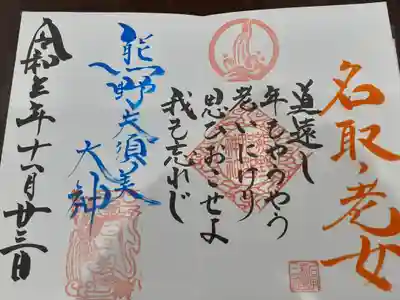 名取ノ老女
道遠し
年もやうやう
老いにけり
思ひおこせよ
我も忘れじ
熊野夫須ノ美
大神
令和三年十一月廿三日